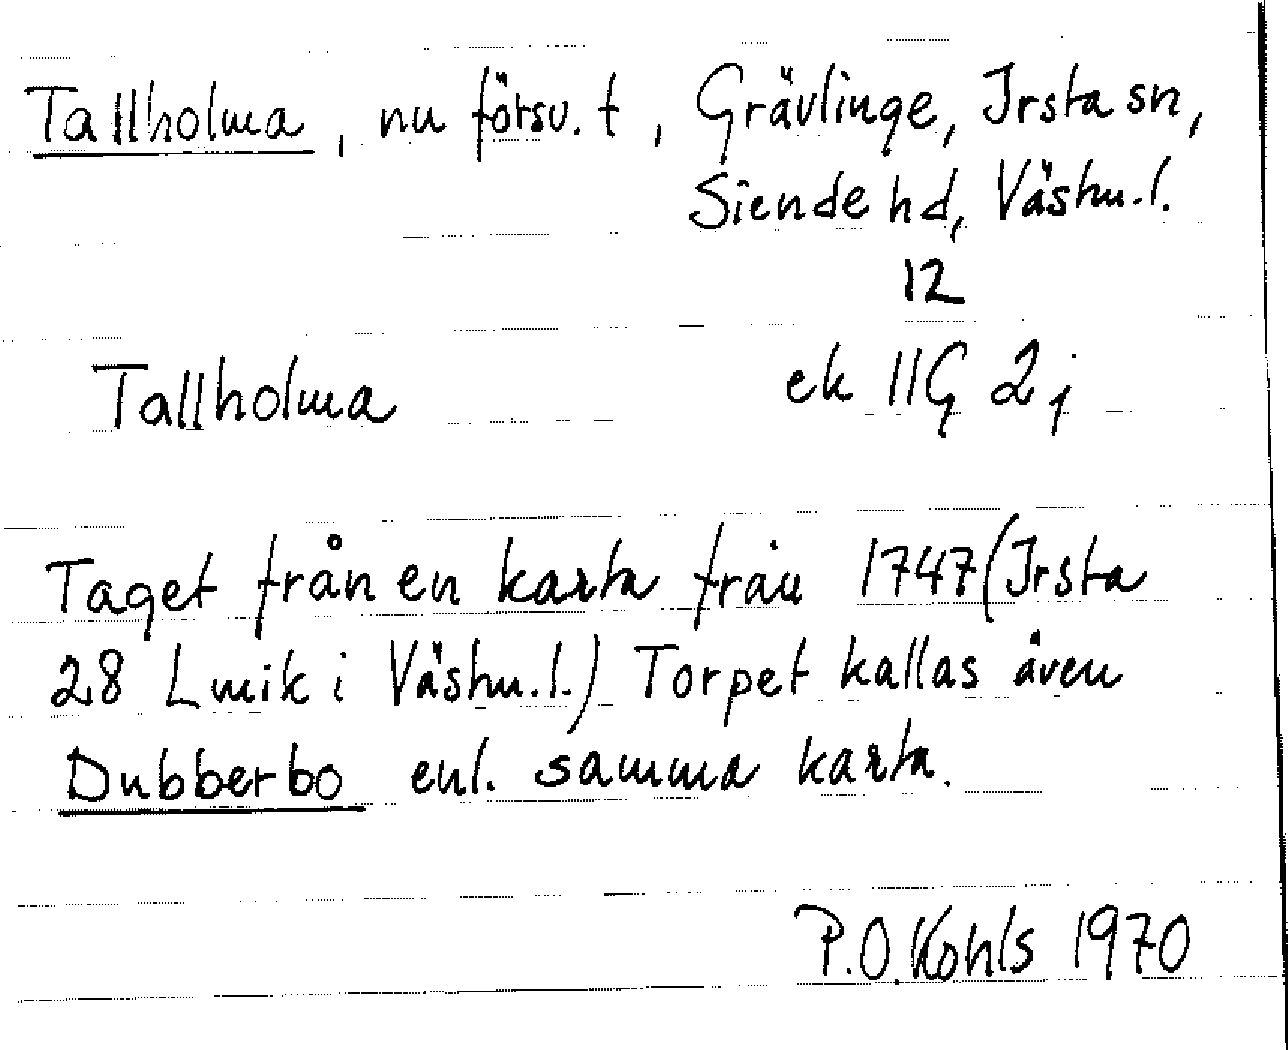 Tallholma, nu försv. t, Grävlinge, Irsta sn,
Siende hd, Västm. l.
12
Tallholma ek 11G 2j
Taget från en karta från 1747 (Irsta
28 Lmik i Västm.l.) Torpet kallas även
Dubberbo enl. samma karta.
P.O. Kohls 1970